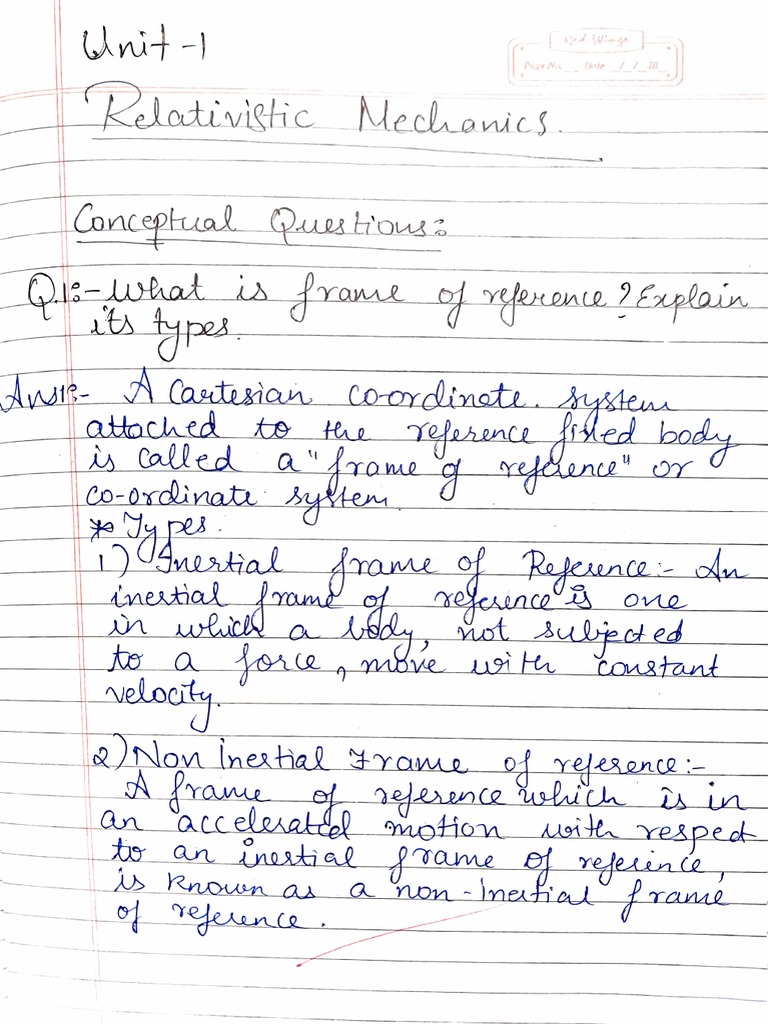 Unit-1
Red Wings
Page No. Date / / 20
Relativistic Mechanics.
Conceptual Questions:
Q1:- What is frame of reference? Explain
its types.
Ans1:- A Cartesian co-ordinate. system
attached to the reference fixed body
is called a "frame of reference" or
co-ordinate system.
* Types.
1) Inertial frame of Reference:- An
inertial frame of reference is one
in which a body, not subjected
to a force, move with constant
velocity.
2) Non Inertial Frame of reference:-
A frame of reference which is in
an accelerated motion with respect
to an inertial frame of reference,
is known as a non-inertial frame
of reference.